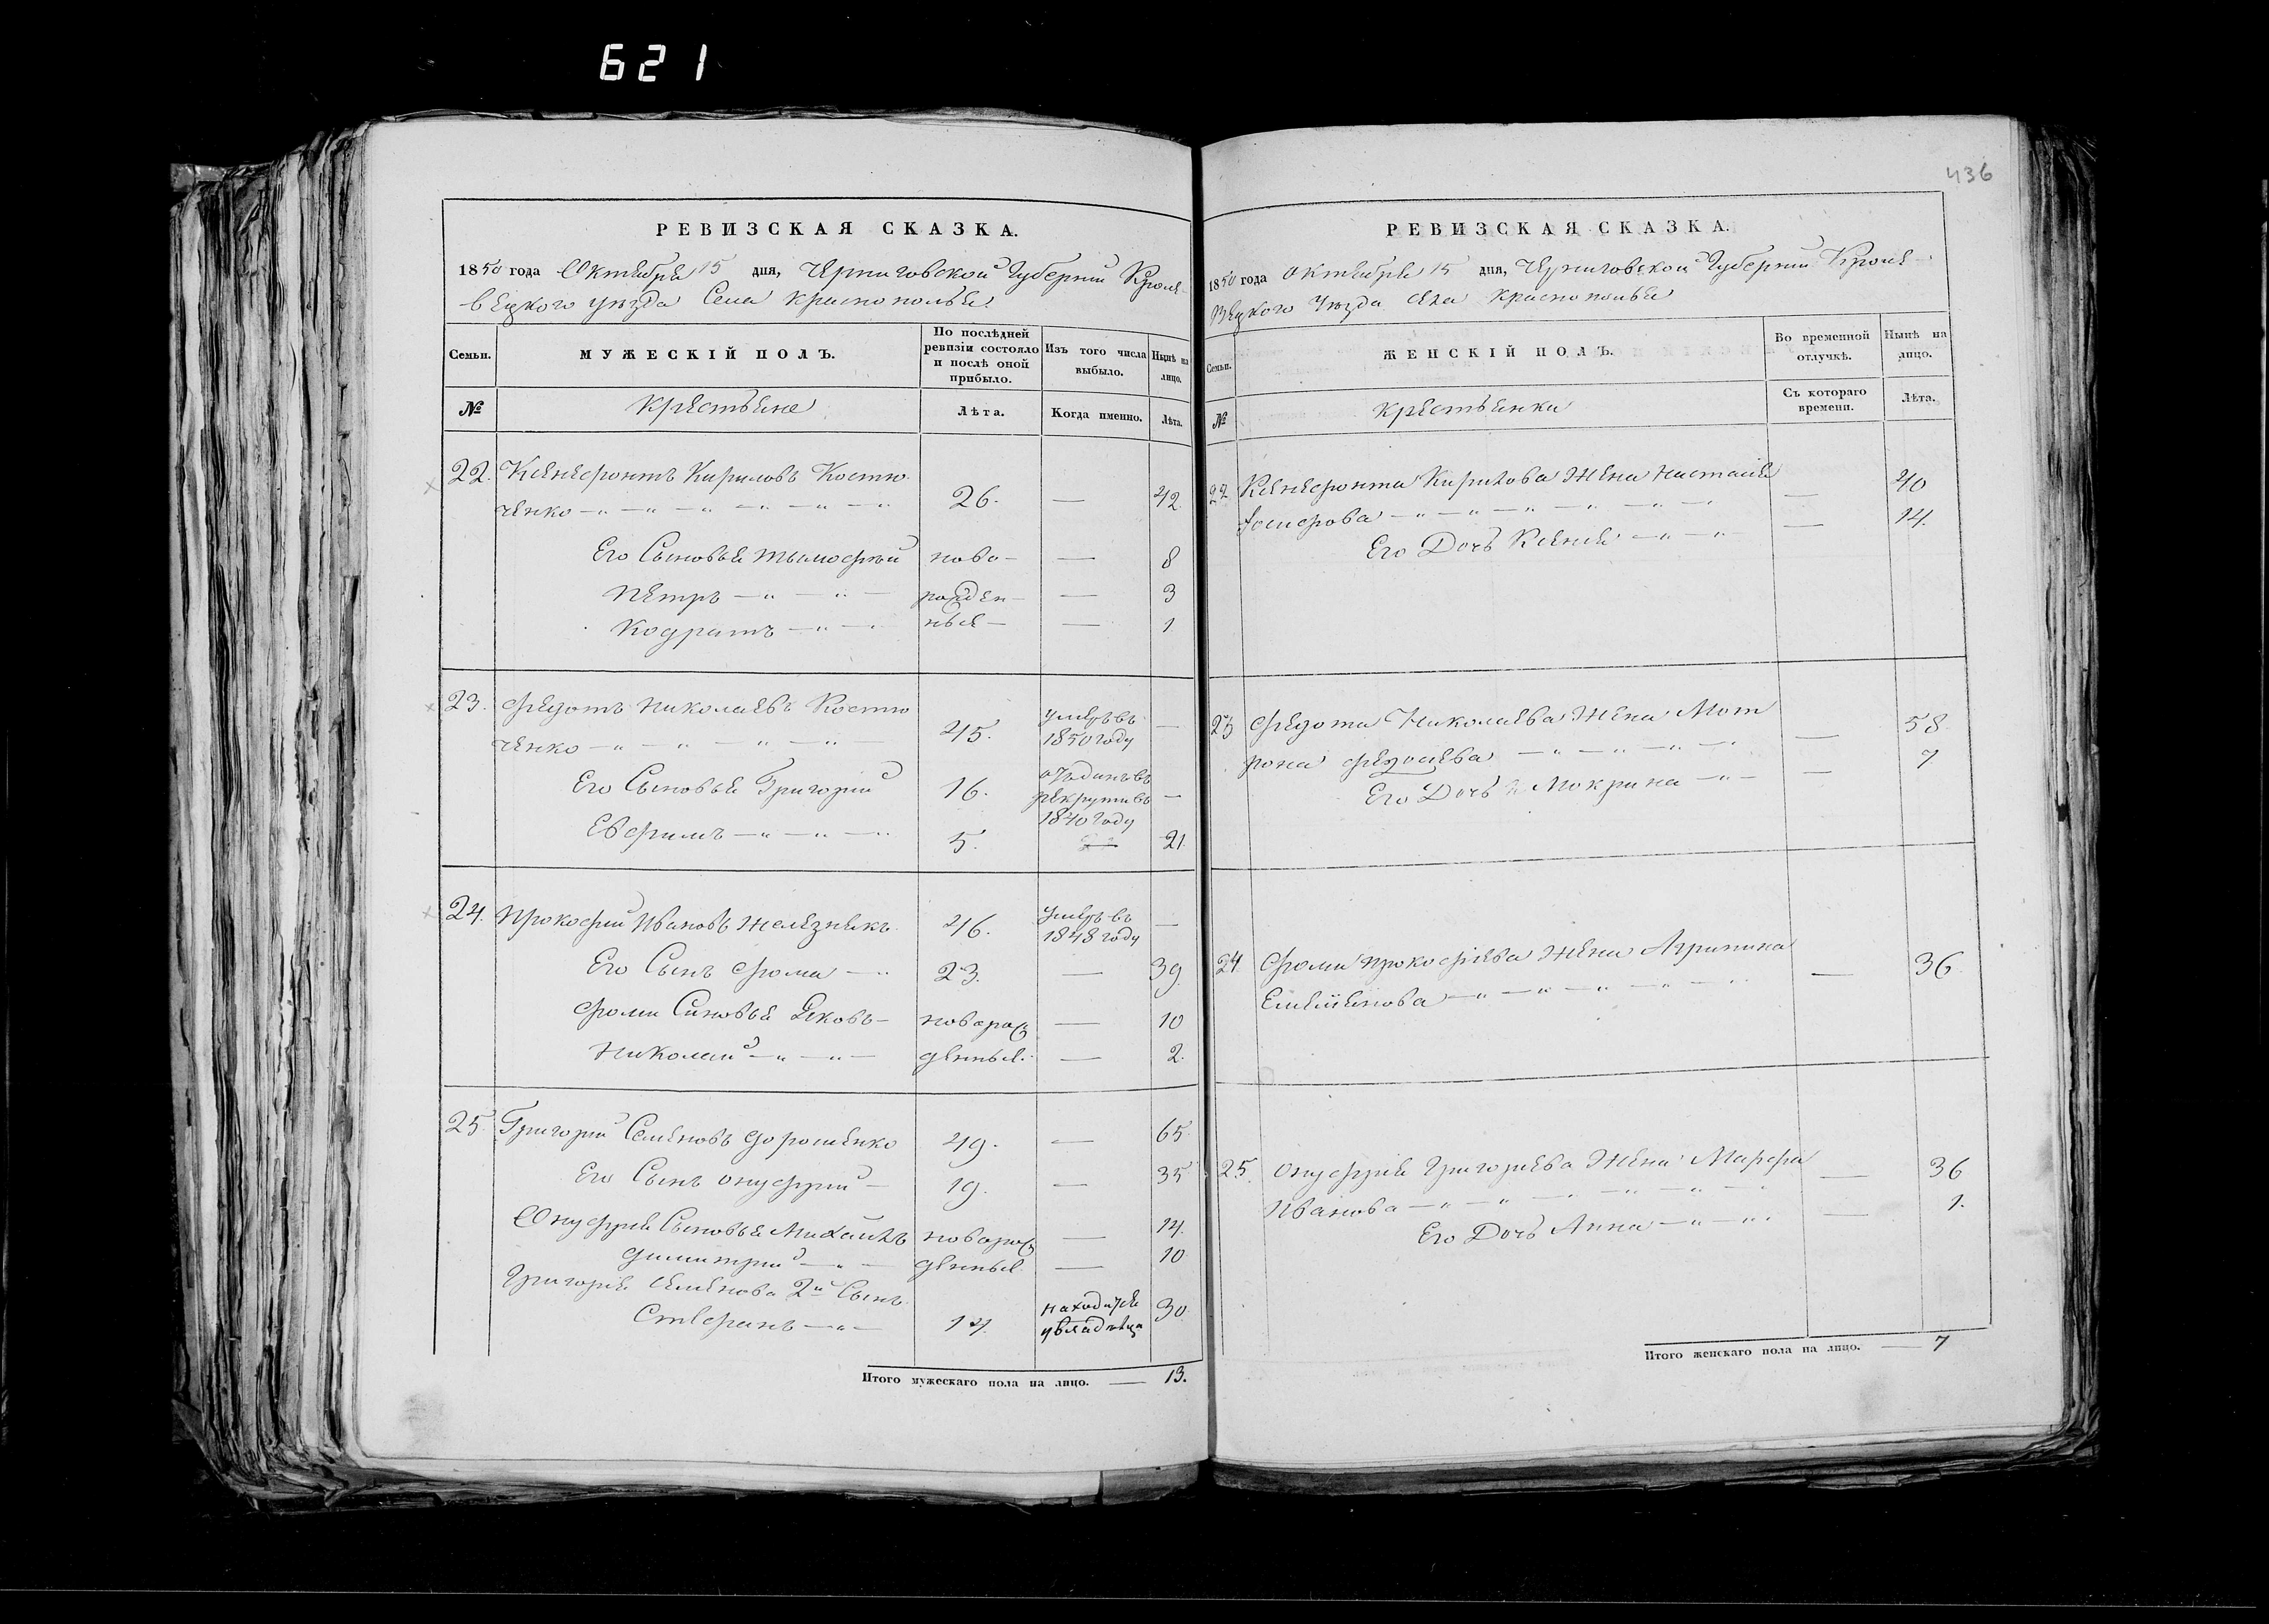 621
436
РЕВИЗСКАЯ СКАЗКА.
1850 года Октября 15 дня, Черниговской Губерний Кроле-
вецкого уезда Села Краснополья
Семьи. МУЖЕСКІЙ ПОЛЪ. По послѣдней ревизіи состояло и послѣ оной прибыло. Изъ того числа выбыло. Нынѣ на лицо.
№ Крестьяне Лѣта. Когда именно. Лѣта.
22. Ксенефонтъ Кириловъ Костю
ченко 26. — 42.
Его Сыновья Тымофѣй ново- — 8
Петръ рожден- — 3
Кодратъ ные — 1
23. Федотъ Николаевъ Костю
ченко 45. умеръ въ 1850 году —
Его Сыновья Григорий 16. отданъ въ рекруты въ 1840 году —
Евфимъ 5. — 21.
24. Прокофий Ивановъ Железнякъ 46. умеръ въ 1848 году —
Его Сынъ Фома 23. — 39.
Фомы Синовья Яковъ новорож — 10
Николай денные. — 2.
25. Григорий Семеновъ Дорошенко 49. — 65.
Его Сынъ Онуфрий 19. — 35
Онуфрия Сыновья Михаилъ новорож — 14.
Димитрий денные — 10
Григория Семенова 2й Сынъ
Стефанъ 14. находится у владельца 30.
Итого мужескаго пола на лицо. — 13.
РЕВИЗСКАЯ СКАЗКА.
1850 года Октября 15 дня, Черниговской Губерний Кроле-
вецкого Уезда села Краснополья
Семьи. ЖЕНСКІЙ ПОЛЪ. Во временной отлучкѣ. Нынѣ на лицо.
№ Крестьянки Съ котораго времени. Лѣта.
22. Ксенефонта Кирилова Жена Настасия
— 40
Его Дочь Ксения — 14.
23 Федота Николаева Жена Мот
рона Федосиева — 58
Его Дочь Мокрина — 7
24. Фомы Прокофиева Жена Агрипина
— 36.
25. Онуфрия Григориева Жена Марфа
Иванова — 36
Его Дочь Анна — 1.
Итого женскаго пола на лицо. — 7